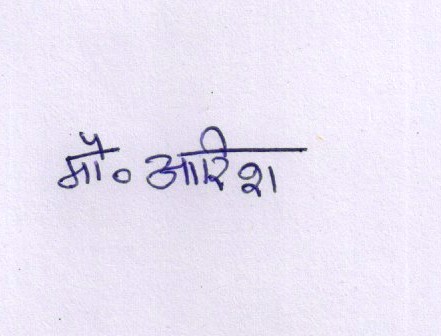 मौ० आरिश